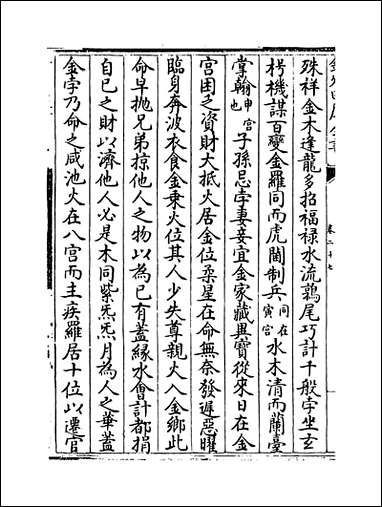 殊祥金木逢龍多招福禄水流鶉尾巧計千般孛坐玄
枵機謀百變金羅同而虎闞制兵同在寅宮水木清而蘭臺
掌翰申宮也子孫忌孛妻妾宜金家藏異寶從來日在金
宮囷之資財大抵火居金位柔星在命無奈發遲惡曜
臨身奔波衣食金乗火位其人少失尊親火入金鄉此
命早抛兄弟掠他人之物以為已有蓋縁水會計都捐
自已之財以濟他人必是木同紫炁炁月為人之華蓋
金孛乃命之咸池火在八宮而主疾羅居十位以遷官
卷二十七